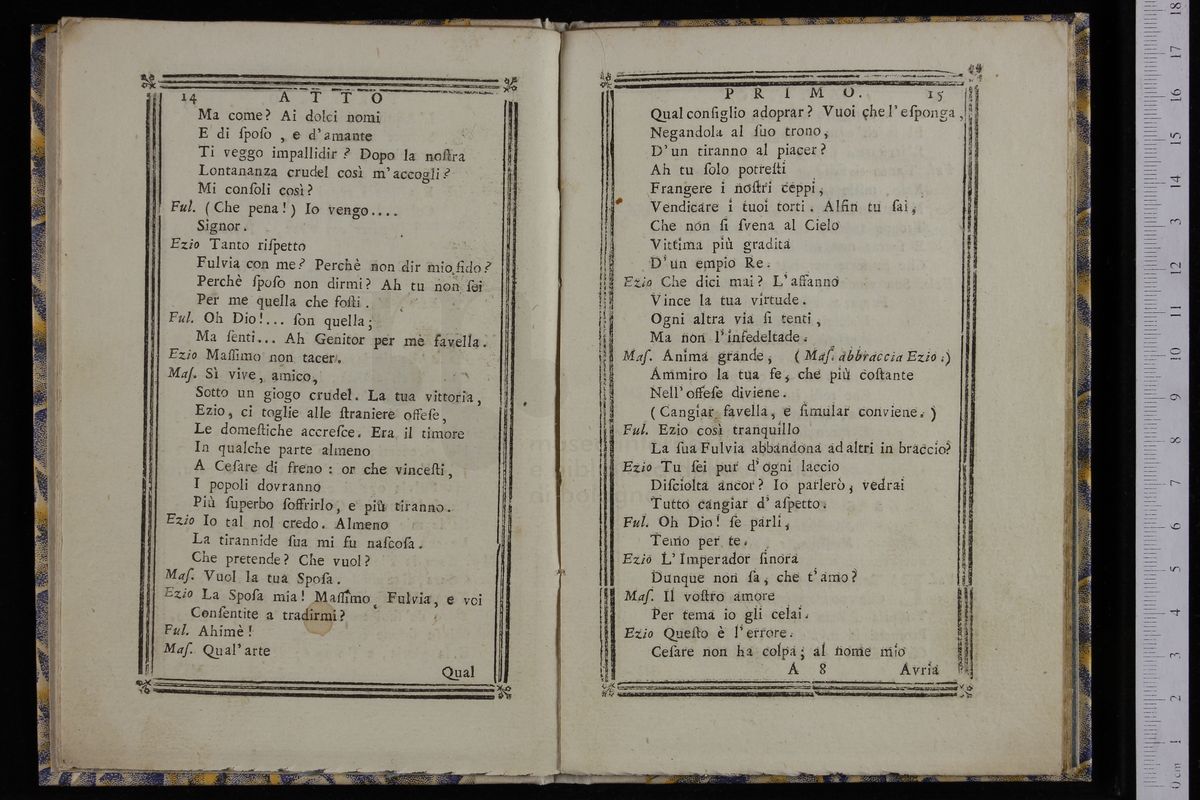 14 ATTO
Ma come? Ai dolci nomi
E di ſpoſo , e d'amante
Ti veggo impallidir ? Dopo la noſtra
Lontananza crudel così m'accogli ?
Mi conſoli così?
Ful. (Che pena!) Io vengo....
Signor.
Ezio Tanto riſpetto
Fulvia con me? Perchè non dir mio fido?
Perchè ſpoſo non dirmi? Ah tu non ſei
Per me quella che foſti .
Ful. Oh Dio!... ſon quella;
Ma ſenti... Ah Genitor per me favella.
Ezio Maſſimo non tacer.
Maſ. Sì vive, amico,
Sotto un giogo crudel. La tua vittoria,
Ezio, ci toglie alle ſtraniere offeſe,
Le domeſtiche accreſce. Era il timore
In qualche parte almeno
A Ceſare di freno : or che vinceſti,
I popoli dovranno
Più ſuperbo ſoffrirlo, e più tiranno.
Ezio Io tal nol credo. Almeno
La tirannide ſua mi fu naſcoſa.
Che pretende? Che vuol?
Maſ. Vuol la tua Spoſa.
Ezio La Spoſa mia! Maſſimo Fulvia, e voi
Conſentite a tradirmi?
Ful. Ahimè!
Maſ. Qual'arte
Qual
PRIMO. 15
Qual conſiglio adoprar? Vuoi che l'eſponga,
Negandola al ſuo trono,
D'un tiranno al piacer?
Ah tu ſolo potreſti
Frangere i noſtri ceppi,
Vendicare i tuoi torti. Alfin tu ſai,
Che non ſi ſvena al Cielo
Vittima più gradita
D'un empio Re.
Ezio Che dici mai? L'affanno
Vince la tua virtude.
Ogni altra via ſi tenti,
Ma non l'infedeltade.
Maſ. Anima grande, (Maſ. abbraccia Ezio.)
Ammiro la tua fe, che più coſtante
Nell'offeſe diviene.
(Cangiar favella, e ſimular conviene.)
Ful. Ezio così tranquillo
La ſua Fulvia abbandona ad altri in braccio?
Ezio Tu ſei pur d'ogni laccio
Diſciolta ancor? Io parlerò, vedrai
Tutto cangiar d'aſpetto.
Ful. Oh Dio! ſe parli,
Temo per te.
Ezio L'Imperador finora
Dunque non ſa, che t'amo?
Maſ. Il voſtro amore
Per tema io gli celai.
Ezio Queſto è l'errore.
Ceſare non ha colpa; al nome mio
A 8 Avria